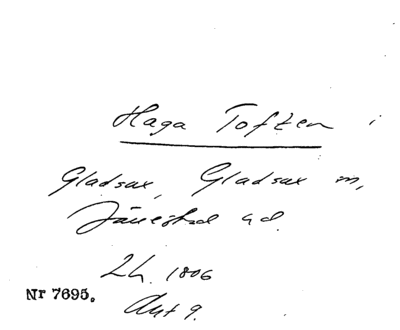 Haga Toften i
Gladsax, Gladsax m,
Järrestad hd.
Lh. 1806
Nr 7695.
Akt 9.